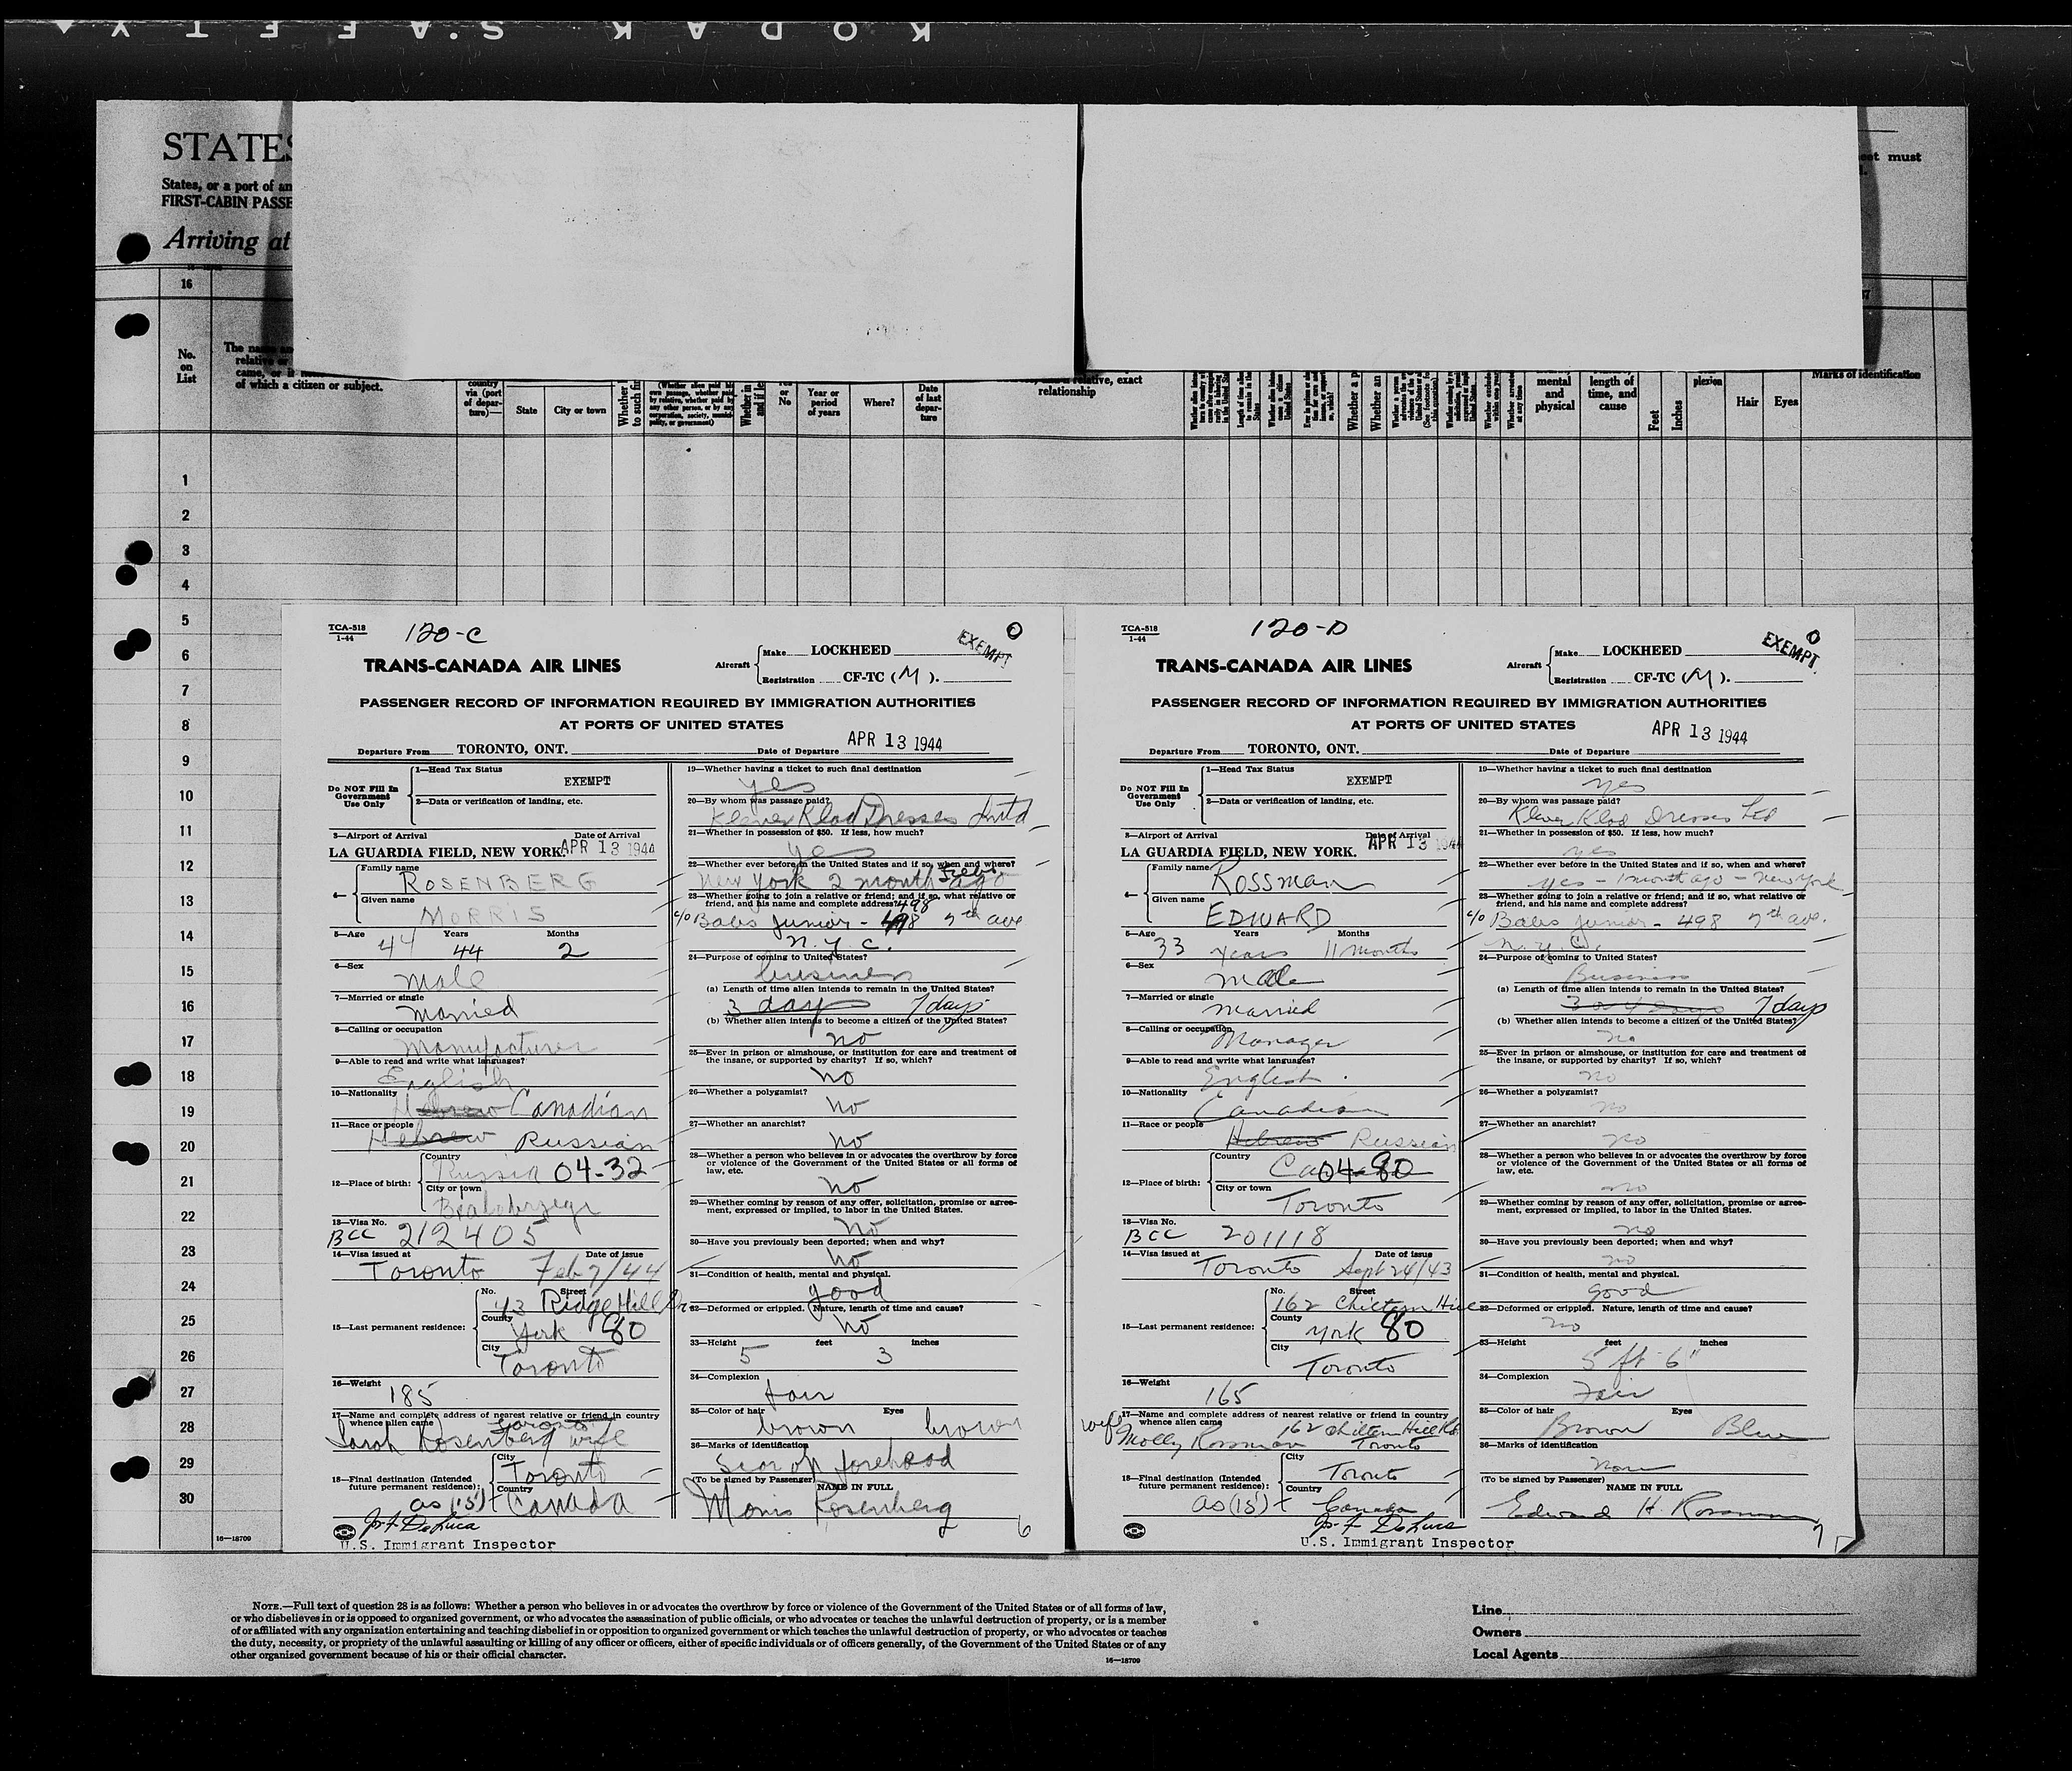 KODAK SAFETY
STATES
States, or a port of an
FIRST-CABIN PASSE
Arriving at
eet must
16
No.
on
List
of which a citizen or subject.
country
via (port
of depar-
ture)—
State
City or town
Whether
to such fi
(Whether alien paid his
own passage, whether paid
by relative, whether paid by
any other person, or by any
corporation, society, munici-
pality, or government)
or
No
Year or
period
of years
Where?
Date
of last
depar-
ture
relative, exact
relationship
Whether a p
Whether an
mental
and
physical
length of
time, and
cause
Feet
Inches
plexion
Hair
Eyes
Marks of identification
1
2
3
4
5
6
7
8
9
10
11
12
13
14
15
16
17
18
19
20
21
22
23
24
25
26
27
28
29
30
16—18709
TCA-518
1-44
120-C
EXEMPT
0
TRANS-CANADA AIR LINES
Aircraft
Make LOCKHEED
Registration CF-TC (M).
PASSENGER RECORD OF INFORMATION REQUIRED BY IMMIGRATION AUTHORITIES
AT PORTS OF UNITED STATES
Departure From TORONTO, ONT. Date of Departure APR 13 1944
Do NOT Fill In
Government
Use Only
1—Head Tax Status
EXEMPT
2—Data or verification of landing, etc.
3—Airport of Arrival Date of Arrival
LA GUARDIA FIELD, NEW YORK. APR 13 1944
4—
Family name
ROSENBERG
Given name
MORRIS
5—Age Years Months
44 44 2
6—Sex
Male
7—Married or single
Married
8—Calling or occupation
Manufacturer
9—Able to read and write what languages?
English
10—Nationality
Hebrew Canadian
11—Race or people
Hebrew Russian
12—Place of birth:
Country
Russia 04-32
City or town
13—Visa No.
BCC 212405
14—Visa issued at Date of issue
Toronto Feb 7/44
15—Last permanent residence:
No. Street
43 Ridge Hill Dr
County
York 80
City
Toronto
16—Weight
185
17—Name and complete address of nearest relative or friend in country
whence alien came Toronto
Sarah Rosenberg wife
18—Final destination (Intended
future permanent residence):
City
Toronto
Country
as (15) Canada
J. F. DeLuca
U.S. Immigrant Inspector
19—Whether having a ticket to such final destination
Yes
20—By whom was passage paid?
Klever Klad Dresses Lmtd
21—Whether in possession of $50. If less, how much?
yes
22—Whether ever before in the United States and if so, when and where?
New York 2 month ago
23—Whether going to join a relative or friend; and if so, what relative or
friend, and his name and complete address? 498
c/o Babs Junior - 498 7th ave
N. Y. C.
24—Purpose of coming to United States?
business
(a) Length of time alien intends to remain in the United States?
3 day 7 days
(b) Whether alien intends to become a citizen of the United States?
no
25—Ever in prison or almshouse, or institution for care and treatment of
the insane, or supported by charity? If so, which?
no
26—Whether a polygamist?
no
27—Whether an anarchist?
no
28—Whether a person who believes in or advocates the overthrow by force
or violence of the Government of the United States or all forms of
law, etc.
no
29—Whether coming by reason of any offer, solicitation, promise or agree-
ment, expressed or implied, to labor in the United States.
no
30—Have you previously been deported; when and why?
no
31—Condition of health, mental and physical.
good
32—Deformed or crippled. Nature, length of time and cause?
no
33—Height feet inches
5 3
34—Complexion
fair
35—Color of hair Eyes
brown brown
36—Marks of identification
Scar on forehead
(To be signed by Passenger) NAME IN FULL
Morris Rosenberg
6
TCA-518
1-44
120-D
EXEMPT
0
TRANS-CANADA AIR LINES
Aircraft
Make LOCKHEED
Registration CF-TC (M).
PASSENGER RECORD OF INFORMATION REQUIRED BY IMMIGRATION AUTHORITIES
AT PORTS OF UNITED STATES
Departure From TORONTO, ONT. Date of Departure APR 13 1944
Do NOT Fill In
Government
Use Only
1—Head Tax Status
EXEMPT
2—Data or verification of landing, etc.
3—Airport of Arrival Date of Arrival
LA GUARDIA FIELD, NEW YORK. APR 13 1944
4—
Family name
Rossman
Given name
EDWARD
5—Age Years Months
33 years 11 months
6—Sex
male
7—Married or single
married
8—Calling or occupation
Manager
9—Able to read and write what languages?
English
10—Nationality
Canadian
11—Race or people
Hebrew Russian
12—Place of birth:
Country
Canada 04-80
City or town
Toronto
13—Visa No.
BCC 201118
14—Visa issued at Date of issue
Toronto Sept 24/43
15—Last permanent residence:
No. Street
162 Chiltern Hill
County
York 80
City
Toronto
16—Weight
165
17—Name and complete address of nearest relative or friend in country
whence alien came 162 Chiltern Hill Rd.
wife Molly Rossman Toronto
18—Final destination (Intended
future permanent residence):
City
Toronto
Country
as (15) Canada
J. F. DeLuca
U.S. Immigrant Inspector
19—Whether having a ticket to such final destination
yes
20—By whom was passage paid?
Klever Klad Dresses Ltd
21—Whether in possession of $50. If less, how much?
yes
22—Whether ever before in the United States and if so, when and where?
yes - 1 month ago - New York
23—Whether going to join a relative or friend; and if so, what relative or
friend, and his name and complete address?
c/o Babs Junior - 498 7th ave.
N. Y. C.
24—Purpose of coming to United States?
Business
(a) Length of time alien intends to remain in the United States?
3 or 4 days 7 days
(b) Whether alien intends to become a citizen of the United States?
no
25—Ever in prison or almshouse, or institution for care and treatment of
the insane, or supported by charity? If so, which?
no
26—Whether a polygamist?
no
27—Whether an anarchist?
no
28—Whether a person who believes in or advocates the overthrow by force
or violence of the Government of the United States or all forms of
law, etc.
no
29—Whether coming by reason of any offer, solicitation, promise or agree-
ment, expressed or implied, to labor in the United States.
no
30—Have you previously been deported; when and why?
no
31—Condition of health, mental and physical.
good
32—Deformed or crippled. Nature, length of time and cause?
no
33—Height feet inches
5 ft 6"
34—Complexion
Fair
35—Color of hair Eyes
Brown Blue
36—Marks of identification
None
(To be signed by Passenger) NAME IN FULL
Edward H. Rossman
7
NOTE.—Full text of question 28 is as follows: Whether a person who believes in or advocates the overthrow by force or violence of the Government of the United States or of all forms of law,
or who disbelieves in or is opposed to organized government, or who advocates the assassination of public officials, or who advocates or teaches the unlawful destruction of property, or is a member
of or affiliated with any organization entertaining and teaching disbelief in or opposition to organized government or which teaches the unlawful destruction of property, or who advocates or teaches
the duty, necessity, or propriety of the unlawful assaulting or killing of any officer or officers, either of specific individuals or of officers generally, of the Government of the United States or of any
other organized government because of his or their official character.
16—18709
Line
Owners
Local Agents